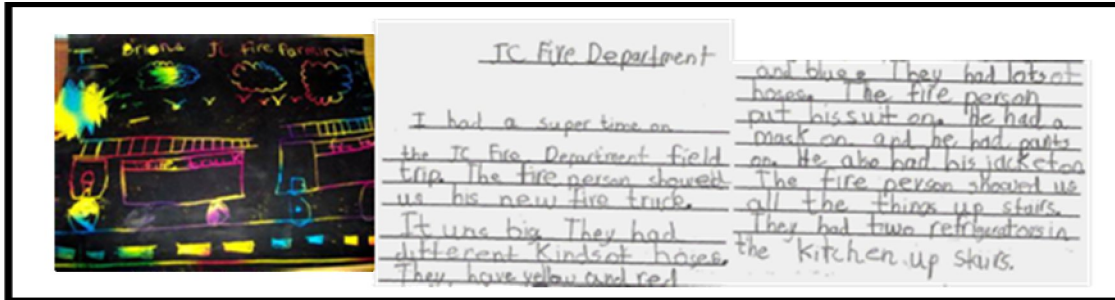 Briana JC Fire
JC Fire Department
I had a super time on
the JC Fire Department field
trip. The fire person showed
us his new fire truck.
It was big. They had
different Kinds of hoses.
They have yellow and red
and blue. They had lots of
hoses. The fire person
put his suit on. He had a
mask on and he had pants
on. He also had his jacket on
The fire person showed us
all the things up stairs.
They had two refrigerators in
the kitchen up stairs.